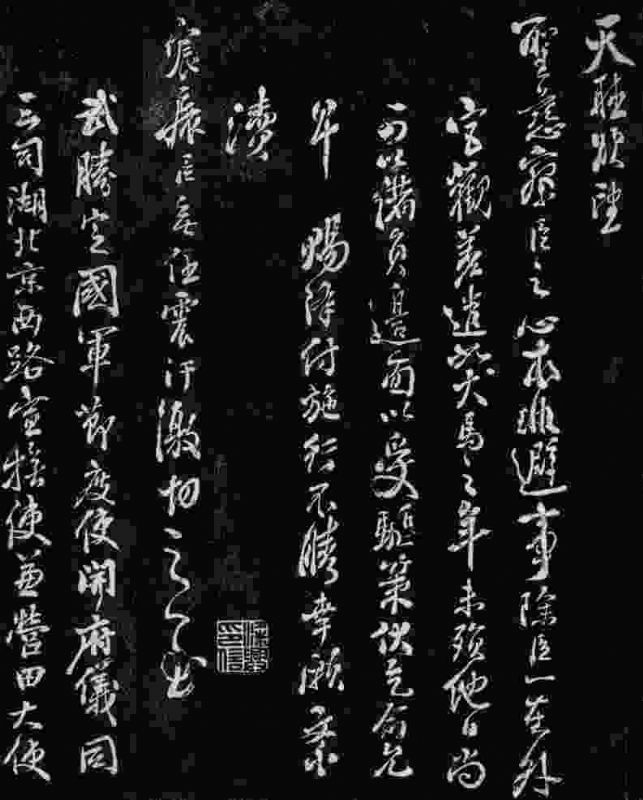 天聽狀望
聖慈察臣之心本非避事除臣一在外
宮觀差遣犬馬之年未殞他日尚
可以備員邉面以受驅策伏乞俞允
早 賜降付施行不勝幸願
瀆
宸臣無任震汗激切之
武勝定國軍節度使開府儀同
三司湖北京西路宣撫使兼營田大使